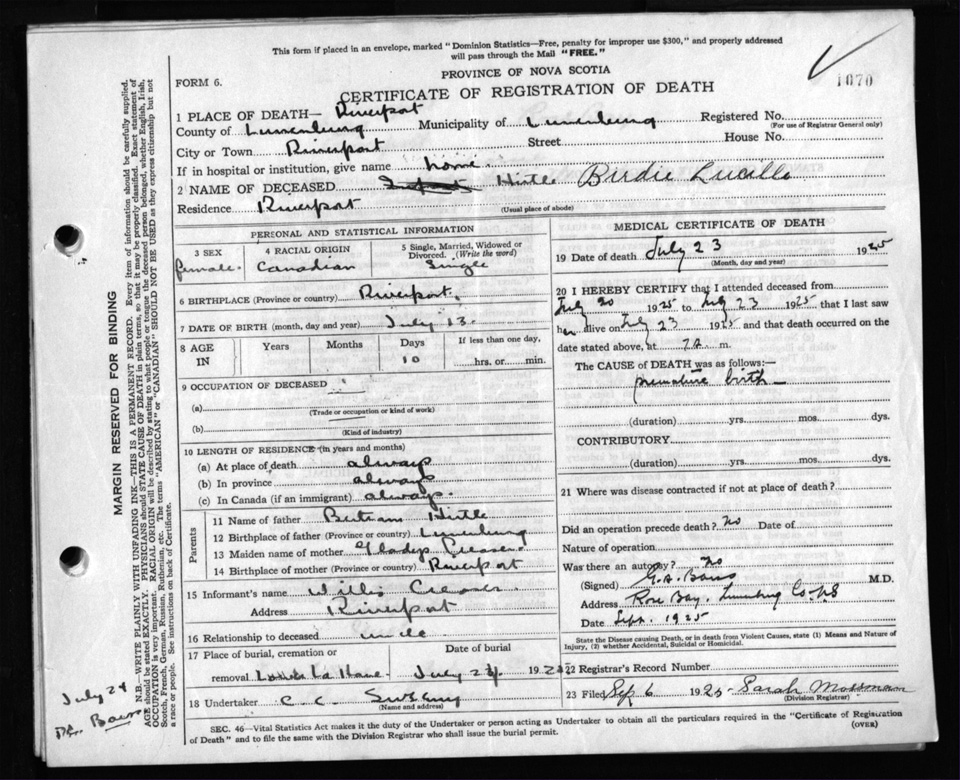 This form if placed in an envelope, marked "Dominion Statistics—Free, penalty for improper use $300," and properly addressed
will pass through the Mail "FREE."
1070
PROVINCE OF NOVA SCOTIA
FORM 6.
CERTIFICATE OF REGISTRATION OF DEATH
1 PLACE OF DEATH— Riverport
County of Lunenburg Municipality of Lunenburg Registered No.
(For use of Registrar General only)
City or Town Riverport Street House No.
If in hospital or institution, give name home
2 NAME OF DECEASED Hirtle Birdie Lucille
Residence Riverport
(Usual place of abode)
PERSONAL AND STATISTICAL INFORMATION
3 SEX 4 RACIAL ORIGIN 5 Single, Married, Widowed or Divorced. (Write the word)
female. Canadian Single
6 BIRTHPLACE (Province or country) Riverport.
7 DATE OF BIRTH (month, day and year) July 13.
8 AGE IN Years Months Days If less than one day,
10 hrs. or min.
9 OCCUPATION OF DECEASED
(a)
(Trade or occupation or kind of work)
(b)
(Kind of industry)
10 LENGTH OF RESIDENCE (in years and months)
(a) At place of death always
(b) In province always
(c) In Canada (if an immigrant) always.
Parents
11 Name of father Bertram Hirtle
12 Birthplace of father (Province or country) Lunenburg
13 Maiden name of mother Gladys Creaser
14 Birthplace of mother (Province or country) Riverport
15 Informant's name Willis Creaser
Address Riverport
16 Relationship to deceased uncle
17 Place of burial, cremation or Date of burial
removal July 24 192
18 Undertaker C. C.
(Name and address)
MEDICAL CERTIFICATE OF DEATH
19 Date of death July 23 1925
(Month, day and year)
20 I HEREBY CERTIFY that I attended deceased from
July 20 1925 to July 23 1925 that I last saw
her alive on July 23 1925 and that death occurred on
date stated above, at 7 a. m.
The CAUSE OF DEATH was as follows:—
premature birth
(duration) yrs. mos. dys.
CONTRIBUTORY
(duration) yrs. mos. dys.
21 Where was disease contracted if not at place of death?
Did an operation precede death? No Date of
Nature of operation
Was there an autopsy? No
(Signed) G. A. M.D.
Address Rose Bay, Lunenburg Co. N.S
Date Sept. 1925
State the Disease causing Death, or in death from Violent Causes, state (1) Means and Nature of
Injury, (2) whether Accidental, Suicidal or Homicidal.
22 Registrar's Record Number
23 Filed Sep 6 1925 Sarah Mossman
(Division Registrar)
SEC. 46—Vital Statistics Act makes it the duty of the Undertaker or person acting as Undertaker to obtain all the particulars required in the "Certificate of Registration
of Death" and to file the same with the Division Registrar who shall issue the burial permit.
(OVER)
MARGIN RESERVED FOR BINDING
N.B.—WRITE PLAINLY WITH UNFADING INK—THIS IS A PERMANENT RECORD. Every item of information should be carefully supplied.
AGE should be stated EXACTLY. PHYSICIANS should STATE CAUSE OF DEATH in plain terms, so that it may be properly classified. Exact statement of
OCCUPATION is very important. RACIAL ORIGIN will be described by stating to what people or tongue the deceased person belonged, whether English, Irish,
Scotch, French, German, Russian, Ruthenian, etc. The terms "AMERICAN" or "CANADIAN" SHOULD NOT BE USED as they express citizenship but not
a race or people. See instructions on back of Certificate.
July 24
Dr.